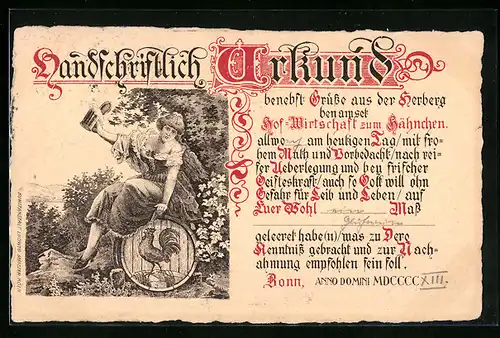 Handschriftlich Urkund
benebst Grüße aus der Herberg
benamset
Hof-Wirtschaft zum Hähnchen.
allwo am heutigen Tag/mit fro-
hem Muth und Vorbedacht/nach rei-
fer Ueberlegung und bey frischer
Geisteskraft/auch so Gott will ohn
Gefahr für Leib und Leben/auf
Euer Wohl ein Maß
geleeret habe(n)/was zu Dero
Kenntniß gebracht und zur Nach-
ahmung empfohlen sein soll.
Bonn, ANNO DOMINI MDCCCCXIII.